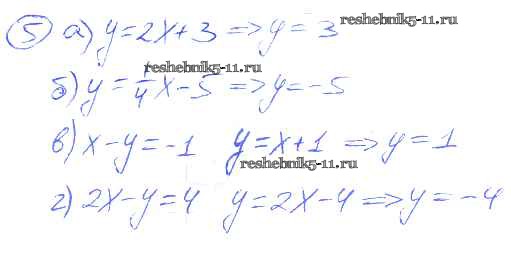 ⑤ а) y=2x+3 => y= 3
reshebnik5-11.ru
reshebnik5-11.ru
б) y= 1/4 x-5 => y=-5
в) x-y=-1 y=x+1 => y=1
reshebnik5-11.ru
г) 2x-y=4 y=2x-4 => y=-4